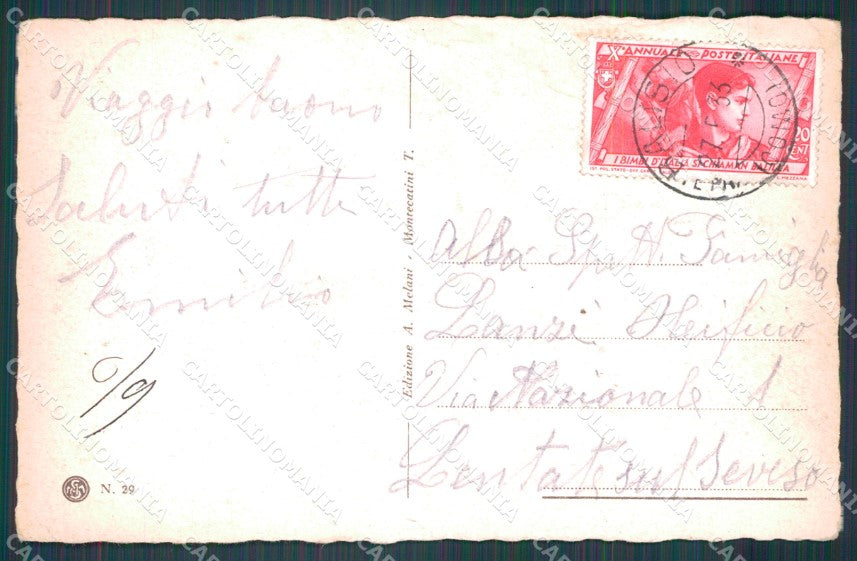 Viaggio buono
Saluti tutti
Emilio
6/9
N. 29
Edizione A. Melani - Montecatini T.
Xº ANNUALE POSTE ITALIANE
20
CENT
I BIMBI D'ITALIA SI CHIAMAN BALILLA
Alla Spt. Famiglia
Lanzi Oleificio
Via Nazionale 1
Lentate sul Seveso
CARTOLINOMANIA